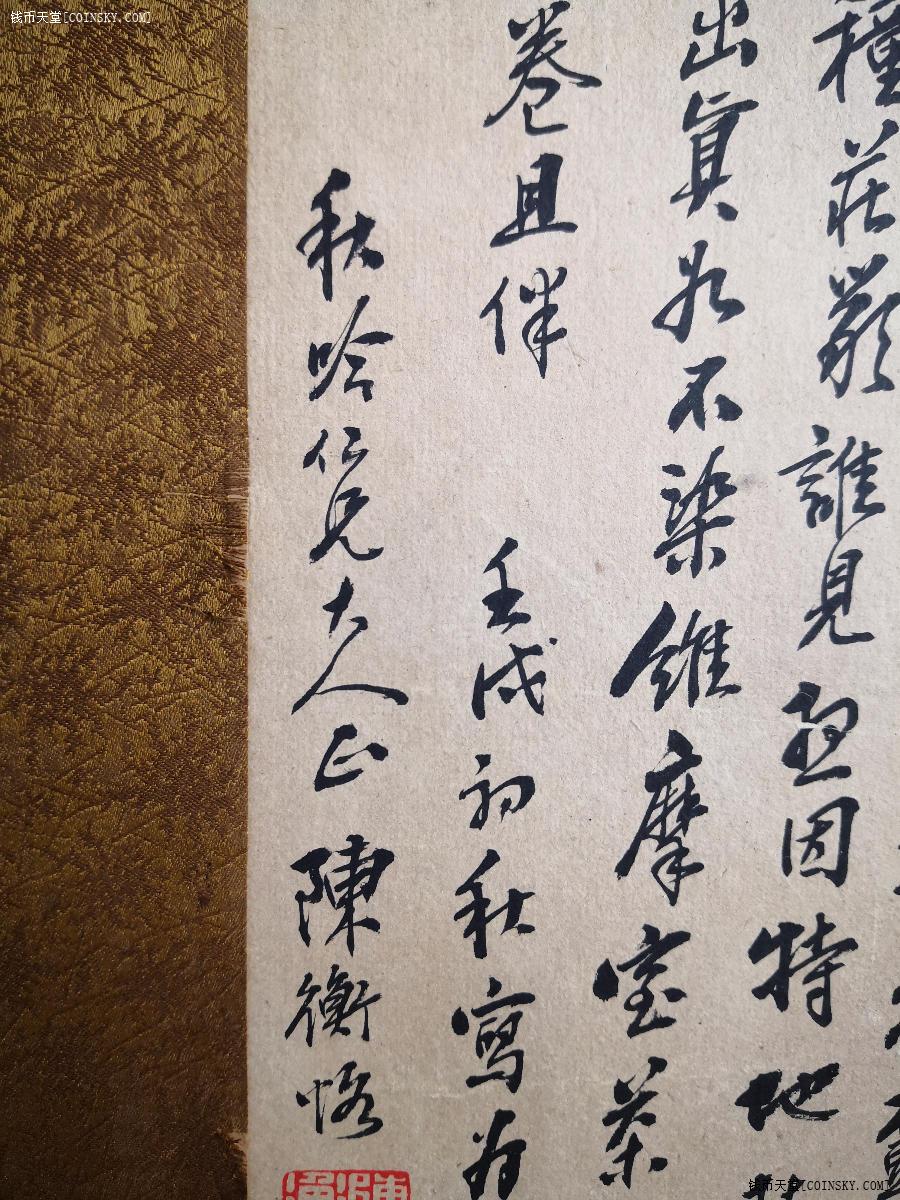 钱币天堂[COINSKY.COM]
種莊嚴誰見聖因特地
出真如不染維摩室業
卷且伴
壬戌初秋寫為
秋吟仁兄大人正 陳衡恪
钱币天堂[COINSKY.COM]